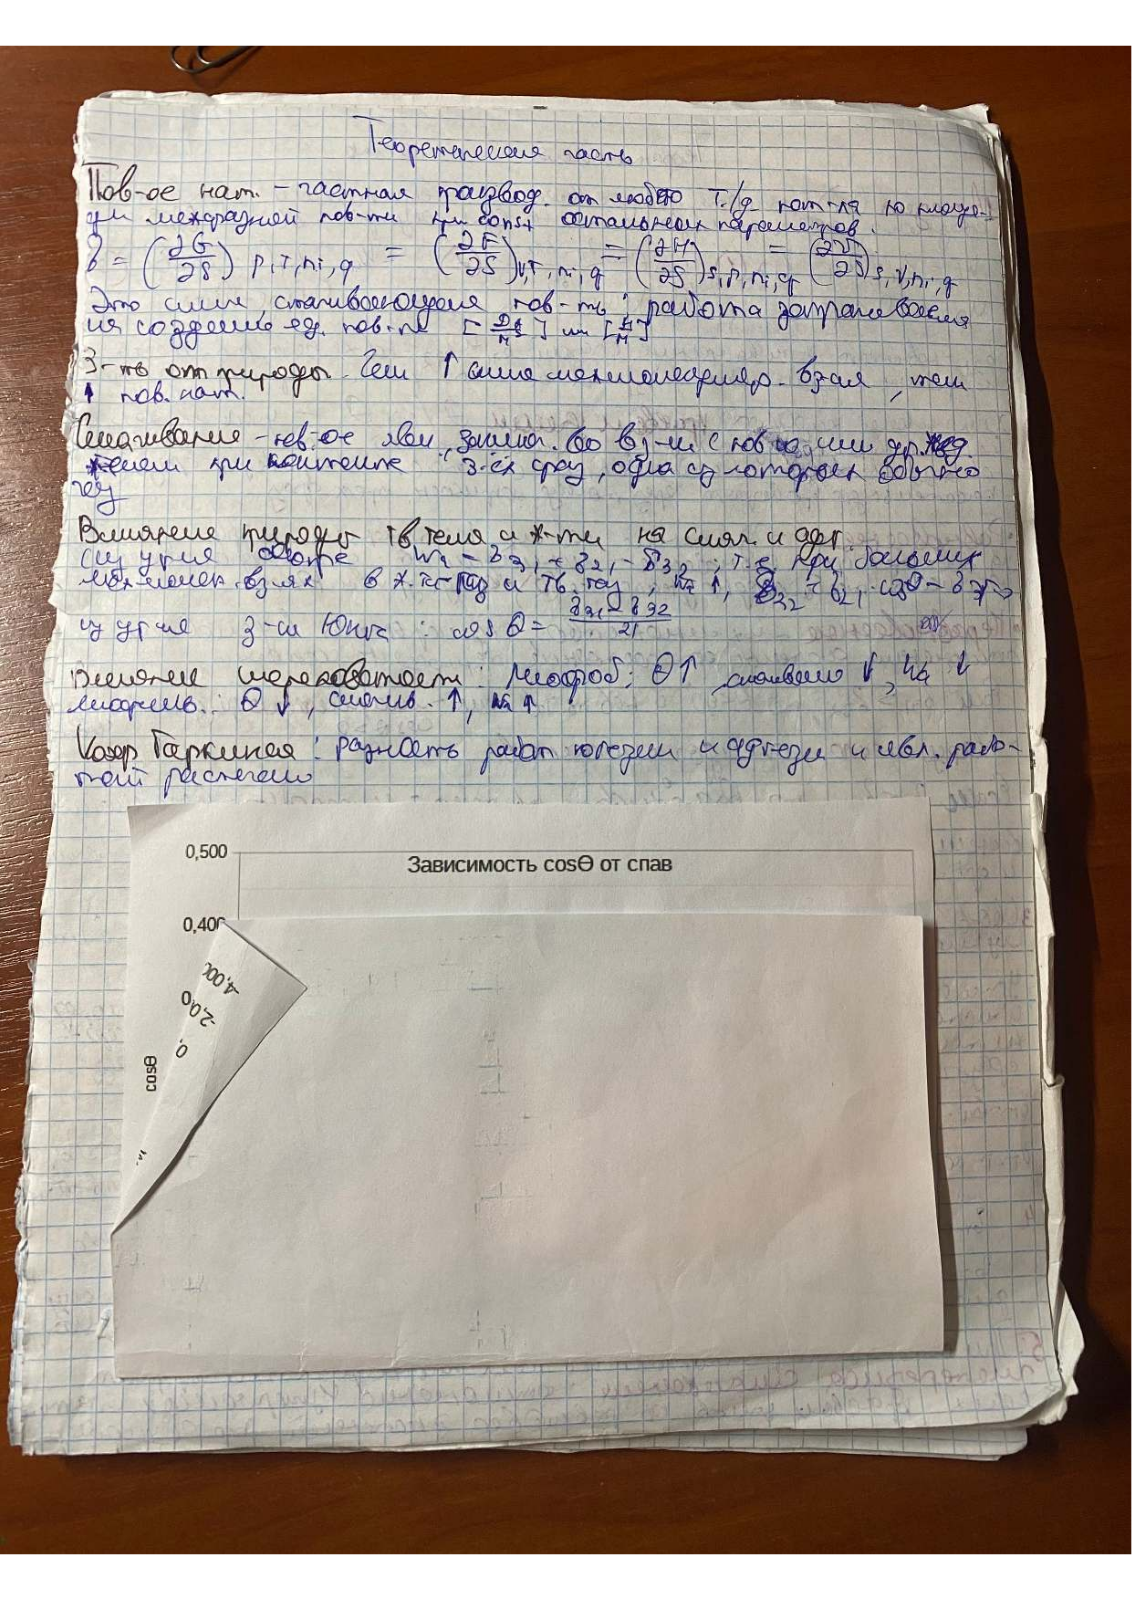 Теоретическая часть
Пов-ое нат. - частная производ. от любого т./д. пот-ла по площа-
ди межфазной пов-ти при const остальных параметров.
б = (∂G/∂S) p,T,ni,q = (∂F/∂S) V,T,ni,q = (∂H/∂S) s,p,ni,q = (∂U/∂S) s,V,ni,q
Это сила стягивающая пов-ть, работа затрачиваемая
на создание ед. пов-ти [Дж/м²] или [Н/м]
З-ть от природы. Чем ↑ сила межмолекуляр. вз-ия, тем
↑ пов. нат.
Смачивание - пов-ое явл., заключ. во вз-ии с пов
телом при контакте 3-ёх фаз, одна из которых обычно
газ
Влияние природы тв тела и ж-ти на смач. и адг.
из ур-ия Wa = , т.е при больших
межмолек. вз-ях в ж. и тв. , Wa ↑,
из ур-ия з-на Юнга : cos Θ =
Влияние шероховатости: лиофоб: Θ↑ смачивание ↓, Wa ↓
лиофильн.: Θ ↓, смачив. ↑, Wa ↑
Коэф Гаркинса: разность работ когезии и адгезии и явл. рабо-
той растекания
0,500
Зависимость cosΘ от спав
0,400
-4,000
-2,000
0,
cosΘ